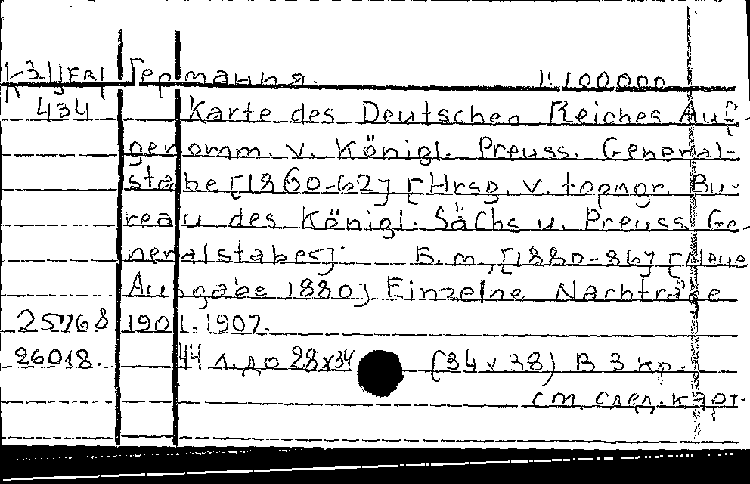 К3/JFR/ Германия. 1:100000
434 Karte des Deutschen Reiches Auf-
genomm. v. Königl. Preuss. General-
stabe [1860-62] [Hrsg. v. topogr. Bu-
reau des Königl. Sächs u. Preuss Ge-
neralstabes]. Б. м., [1880-86] [Neue
Ausgabe 1880] Einzelne Nachträge
25768 1901.1907.
26018. 44 л. до 28x34 (34x38) В 3 кр.
см. след. карт.